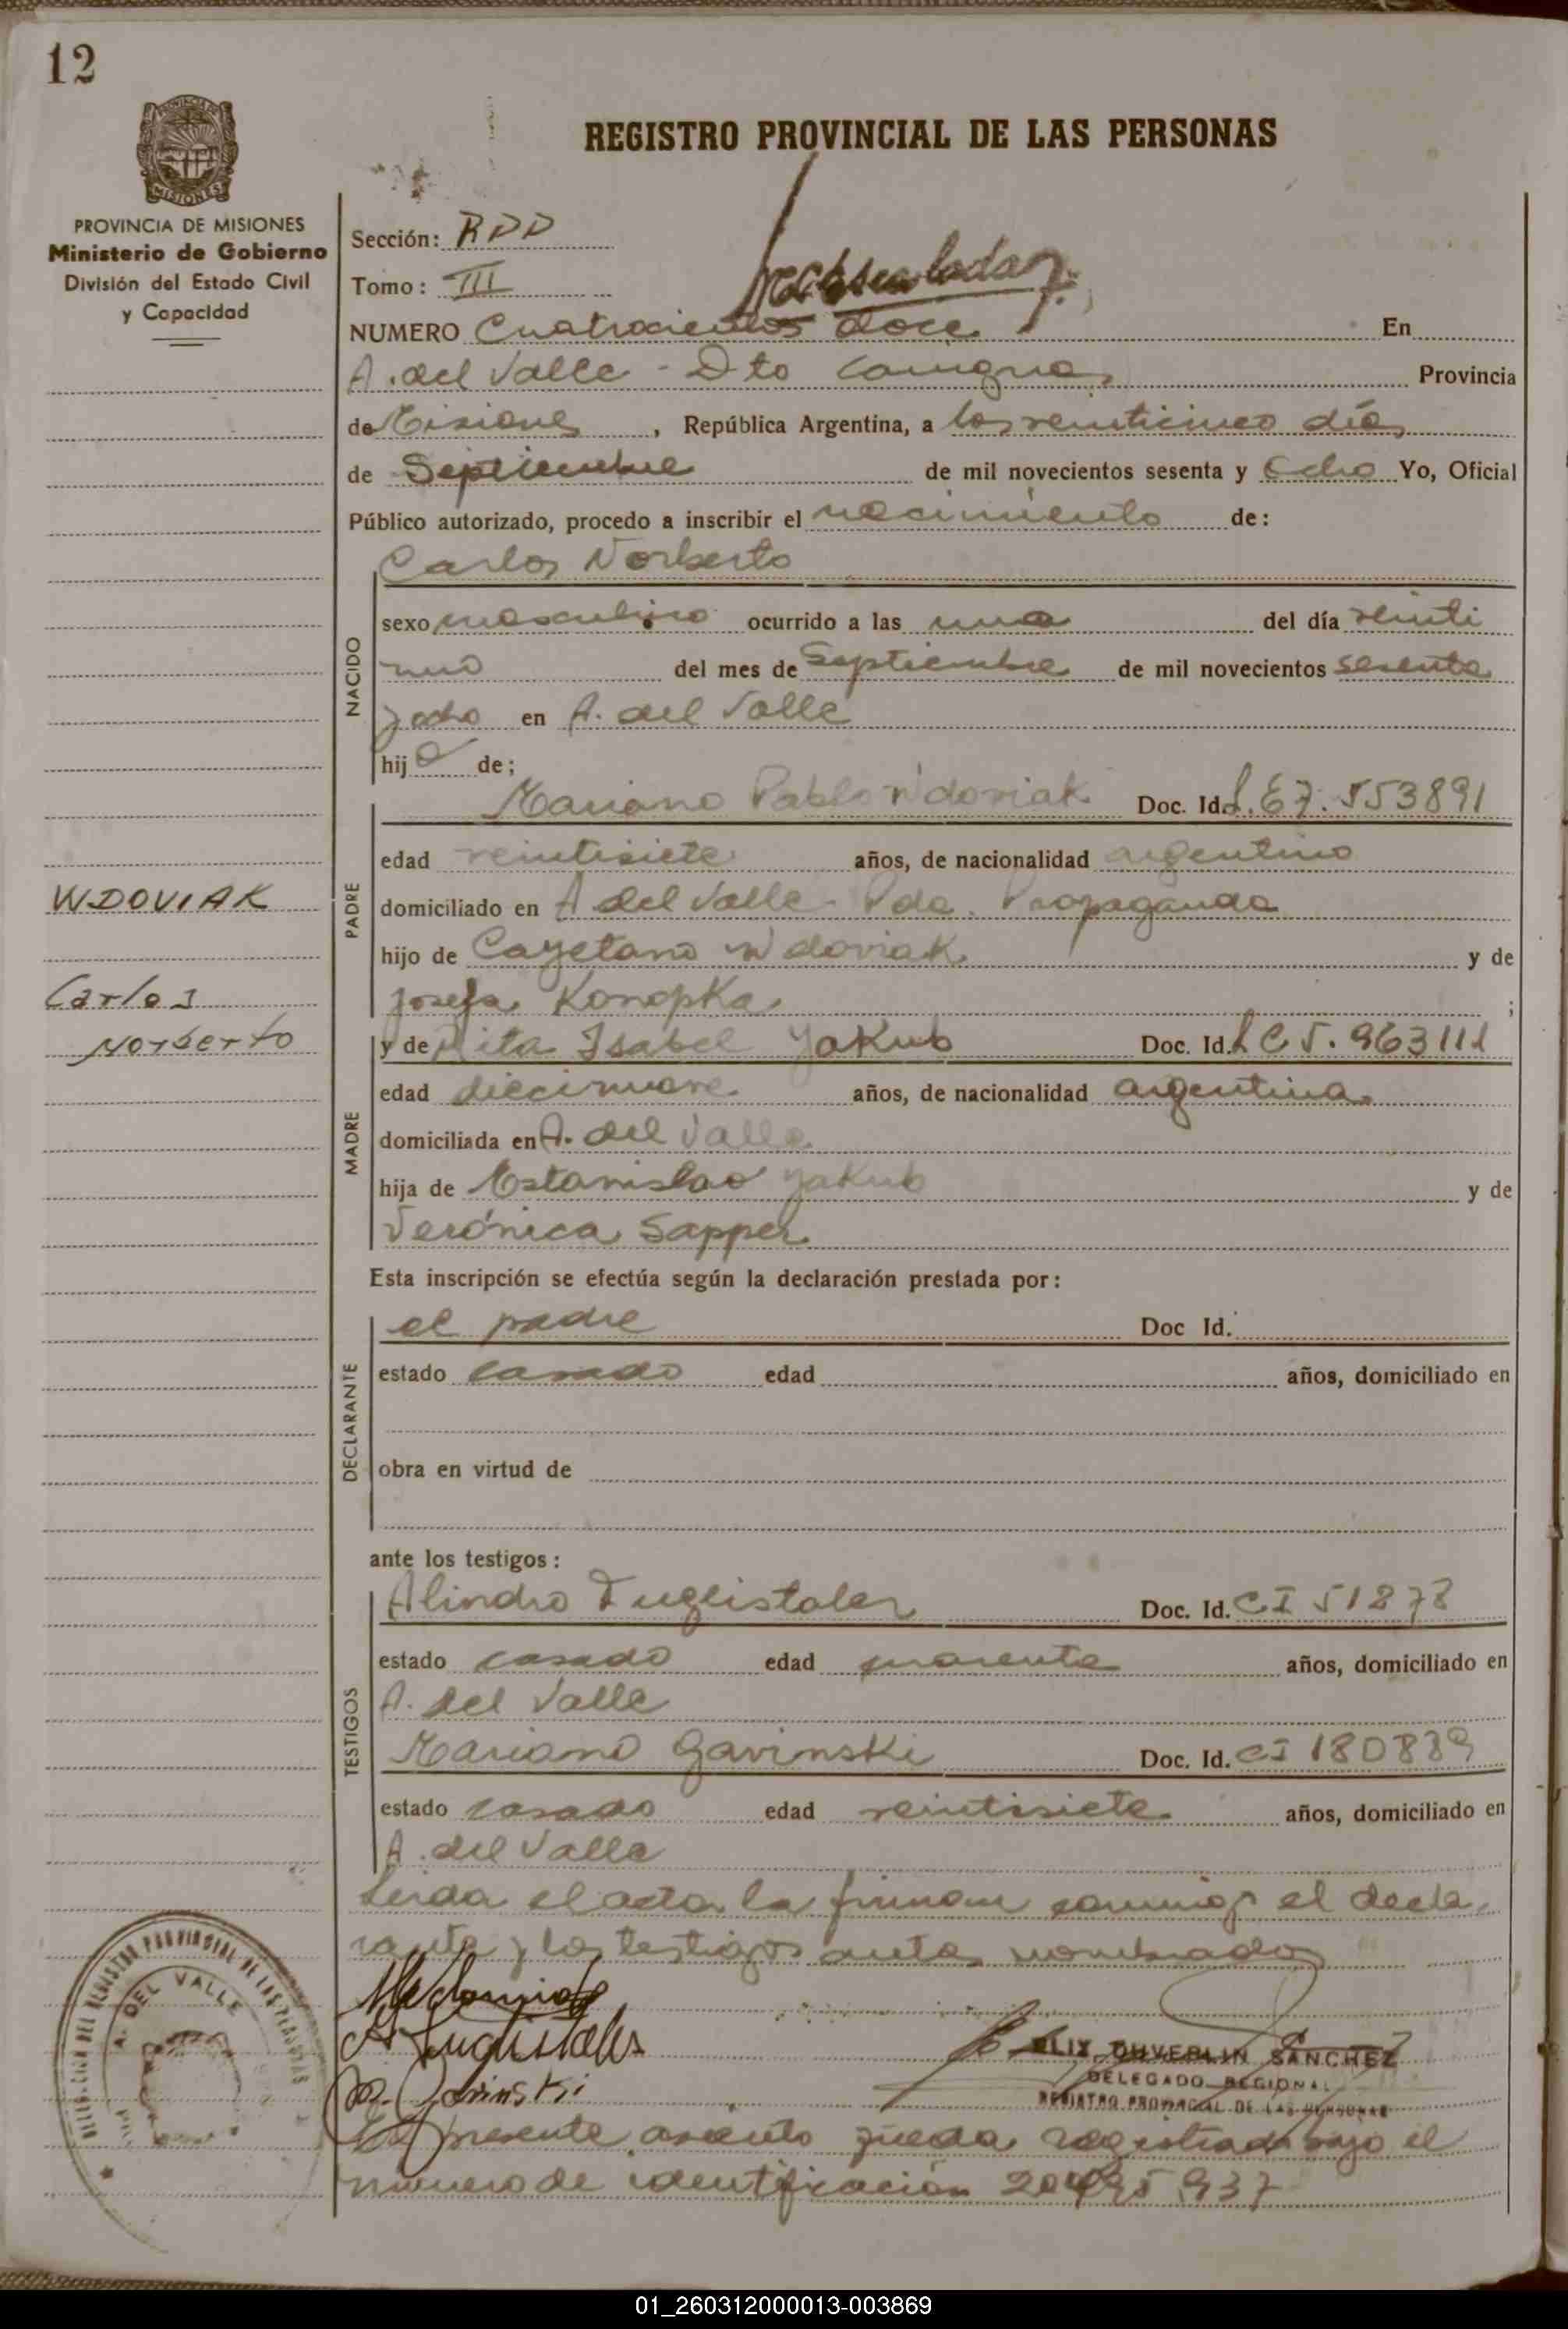 12
REGISTRO PROVINCIAL DE LAS PERSONAS
PROVINCIA DE MISIONES
Ministerio de Gobierno
División del Estado Civil
y Capacidad
Sección: RDD
Tomo: III
NUMERO Cuatrocientos doce En
A. del Valle - Dto Cainguas Provincia
de Misiones, República Argentina, a los veinticinco días
de Septiembre de mil novecientos sesenta y Ocho Yo, Oficial
Público autorizado, procedo a inscribir el nacimiento de:
Carlos Norberto
NACIDO
sexo masculino ocurrido a las una del día veinti
uno del mes de Septiembre de mil novecientos sesenta
y ocho en A. del Valle
hijo de;
Mariano Pablo Wdoviak Doc. Id. L.E 7.553891
PADRE
edad veintisiete años, de nacionalidad argentino
domiciliado en A del Valle Pda. Propaganda
WDOVIAK
hijo de Cayetano Wdoviak y de
Carlos
Josefa Konopka ;
Norberto
y de Rita Isabel Yakub Doc. Id. L C 5.963111
MADRE
edad diecinueve años, de nacionalidad argentina
domiciliada en A. del Valle
hija de Estanislao Yakub y de
Verónica Sapper
Esta inscripción se efectúa según la declaración prestada por:
el padre Doc Id.
DECLARANTE
estado casado edad años, domiciliado en
obra en virtud de
ante los testigos:
Alindro Luglistaler Doc. Id. CI 51273
TESTIGOS
estado casado edad cuarenta años, domiciliado en
A. del Valle
Mariano Gavinski Doc. Id. CI 180839
estado casado edad veintisiete años, domiciliado en
A. del Valle
Leida el acta la firman conmigo el decla
rante y los testigos antes nombrados
A. DEL VALLE
SANCHEZ
DELEGADO REGIONAL
REGISTRO PROVINCIAL DE LAS PERSONAS
El presente asiento queda registrado bajo el
número de identificación
01_260312000013-003869